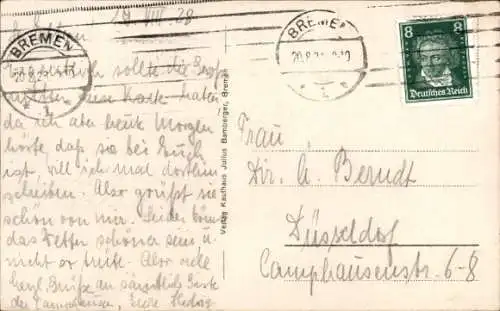 19. VIII. 28
BREMEN
sollte die
eine Karte haben,
da ich aber heute Morgen
hörte, daß sie bei Euch
ist, will ich mal dorthin
schreiben. Also grüßt sie
schön von mir. Leider könnte
das Wetter schöner sein u.
nicht so heute. Also viele
herzl. Grüße an sämtliche Gäste
der Camphausen, Eure Hedwig
Verlag Kaufhaus Julius Bamberger, Bremen
BREMEN
20.8.2
8 8
Deutsches Reich
Frau
Dir. A. Berndt
Düsseldorf
Camphausenstr. 6-8